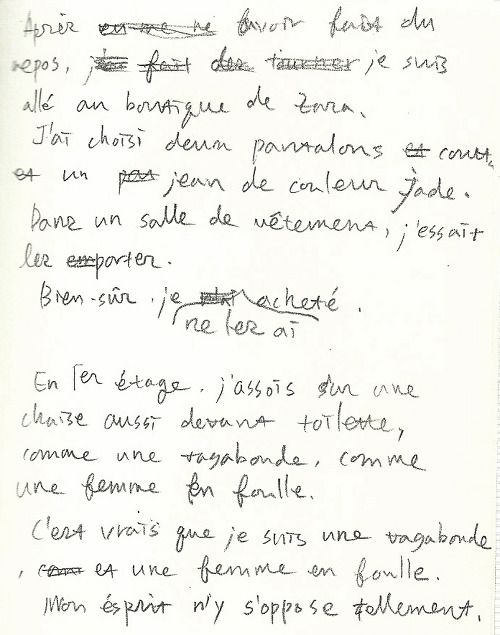 Après en me ne favoir fait du
repos, j'ai fait des tourner je suis
allé au boutique de Zara.
J'ai choisi deux pantalons et court,
et un pas jean de couleur Jade.
Dans un salle de vêtement, j'essait
les emporter.
Bien-sûr. je acheté.
ne les ai
En 1er étage. j'assois sur une
chaise aussi devant toilette,
comme une vagabonde, comme
une femme en foulle.
C'est vrais que je suis une vagabonde
, et une femme en foulle.
Mon ésprit n'y s'oppose tellement.